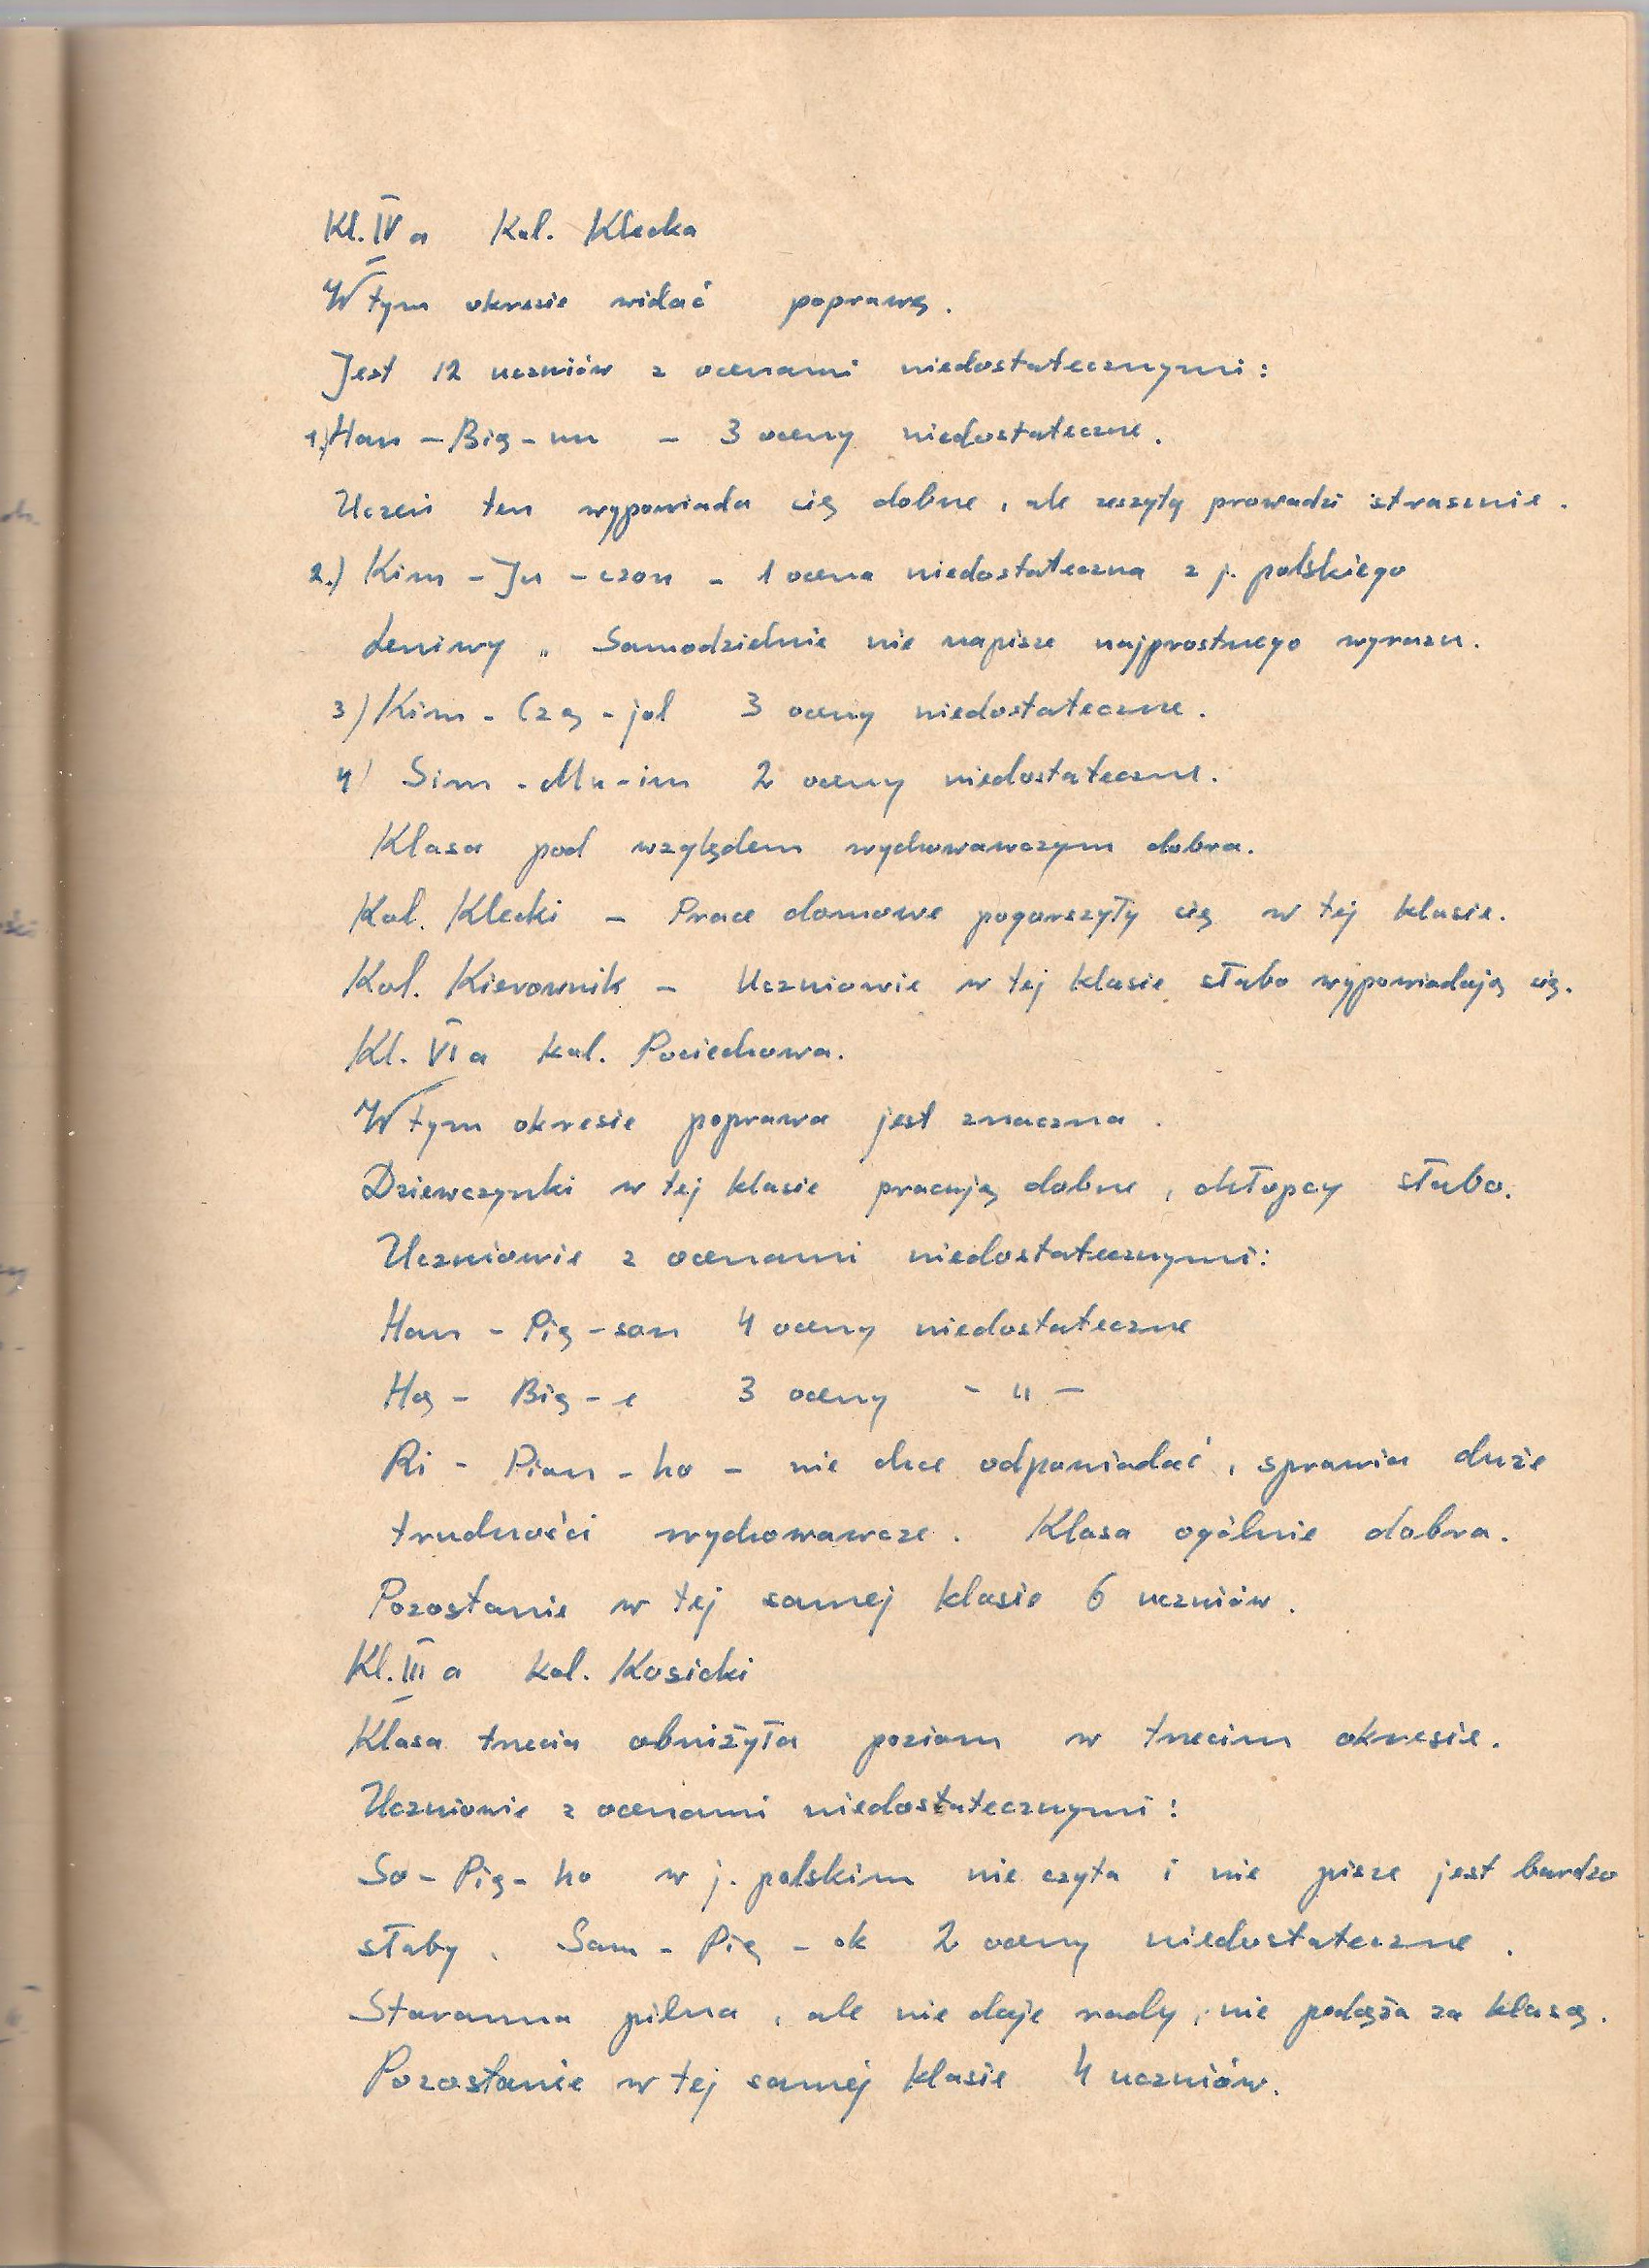 Kl. IV a Kol. Klecka
W tym okresie widać poprawę.
Jest 12 uczniów z ocenami niedostatecznymi:
1.) Han - Bię - un - 3 oceny niedostateczne.
Uczeń ten wypowiada się dobrze, ale zeszyty prowadzi strasznie.
2.) Kim - Ju - czon - 1 ocena niedostateczna z j. polskiego
Leniwy. Samodzielnie nie napisze najprostrzego wyrazu.
3) Kim - Czę - jol 3 oceny niedostateczne.
4) Sim - Mu - im 2 oceny niedostateczne.
Klasa pod względem wychowawczym dobra.
Kol. Klecki - Prace domowe pogorszyły się w tej klasie.
Kol. Kierownik - Uczniowie w tej klasie słabo wypowiadają się.
Kl. VI a kol. Pociechowa.
W tym okresie poprawa jest znaczna.
Dziewczynki w tej klasie pracują dobrze, chłopcy słabo.
Uczniowie z ocenami niedostatecznymi:
Han - Pię - son 4 oceny niedostateczne
Hą - Bię - e 3 oceny - " -
Ri - Pian - ho - nie chce odpowiadać, sprawia duże
trudności wychowawcze. Klasa ogólnie dobra.
Pozostanie w tej samej klasie 6 uczniów.
Kl. III a kol. Kosicki
Klasa trzecia obniżyła poziom w trzecim okresie.
Uczniowie z ocenami niedostatecznymi:
So - Pię - ho w j. polskim nie czyta i nie pisze jest bardzo
słaby. Sam - Pię - ok 2 oceny niedostateczne.
Staranna pilna, ale nie daje rady, nie podąża za klasą.
Pozostanie w tej samej klasie 4 uczniów.